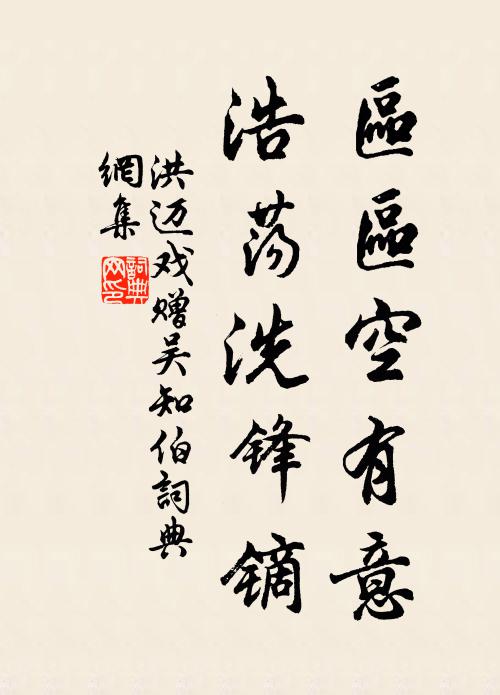 區區空有意
浩荡洗锋镝
洪迈戏赠吴知伯詞典
網集
詞典
网印